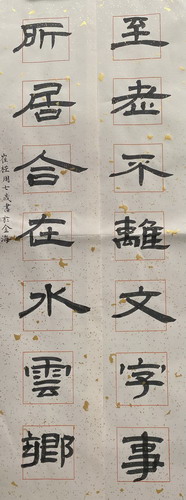 至老不離文字事
所居合在水雲鄉
崔径周七歲書於金海